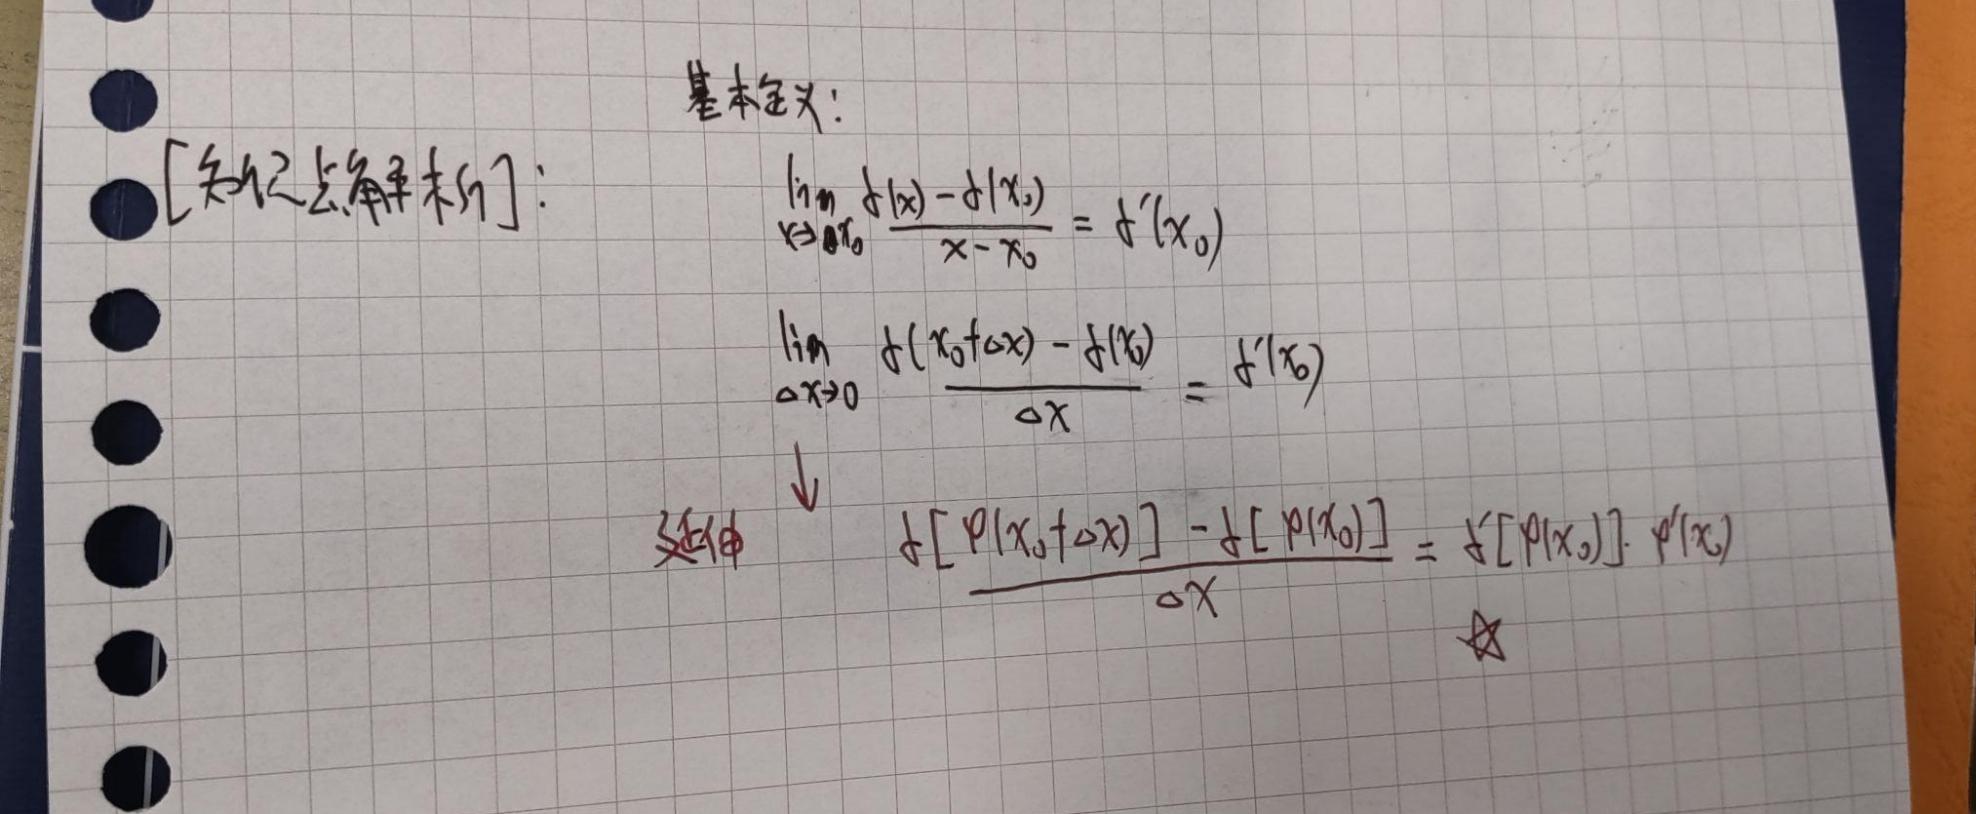 基本定义:
[知识点解析]:
lim x→x₀ f(x)-f(x₀) / x-x₀ = f'(x₀)
lim Δx→0 f(x₀+Δx)-f(x₀) / Δx = f'(x₀)
↓
延伸 f[φ(x₀+Δx)]-f[φ(x₀)] / Δx = f'[φ(x₀)]·φ'(x₀)
☆